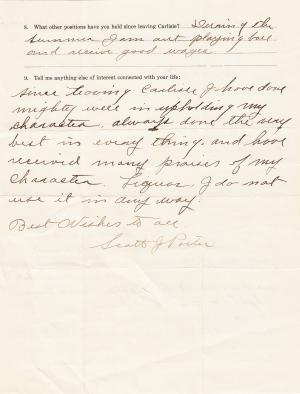 8. What other positions have you held since leaving Carlisle? During the
summer I am out playing ball
and receive good wages
9. Tell me anything else of interest connected with your life:
Since leaving Carlisle I have done
mighty well in upholding my
character, always done the very
best in every thing, and have
received many praises of my
character. Liquor, I do not
use it in any way.
Best Wishes to all
Scott J Porter